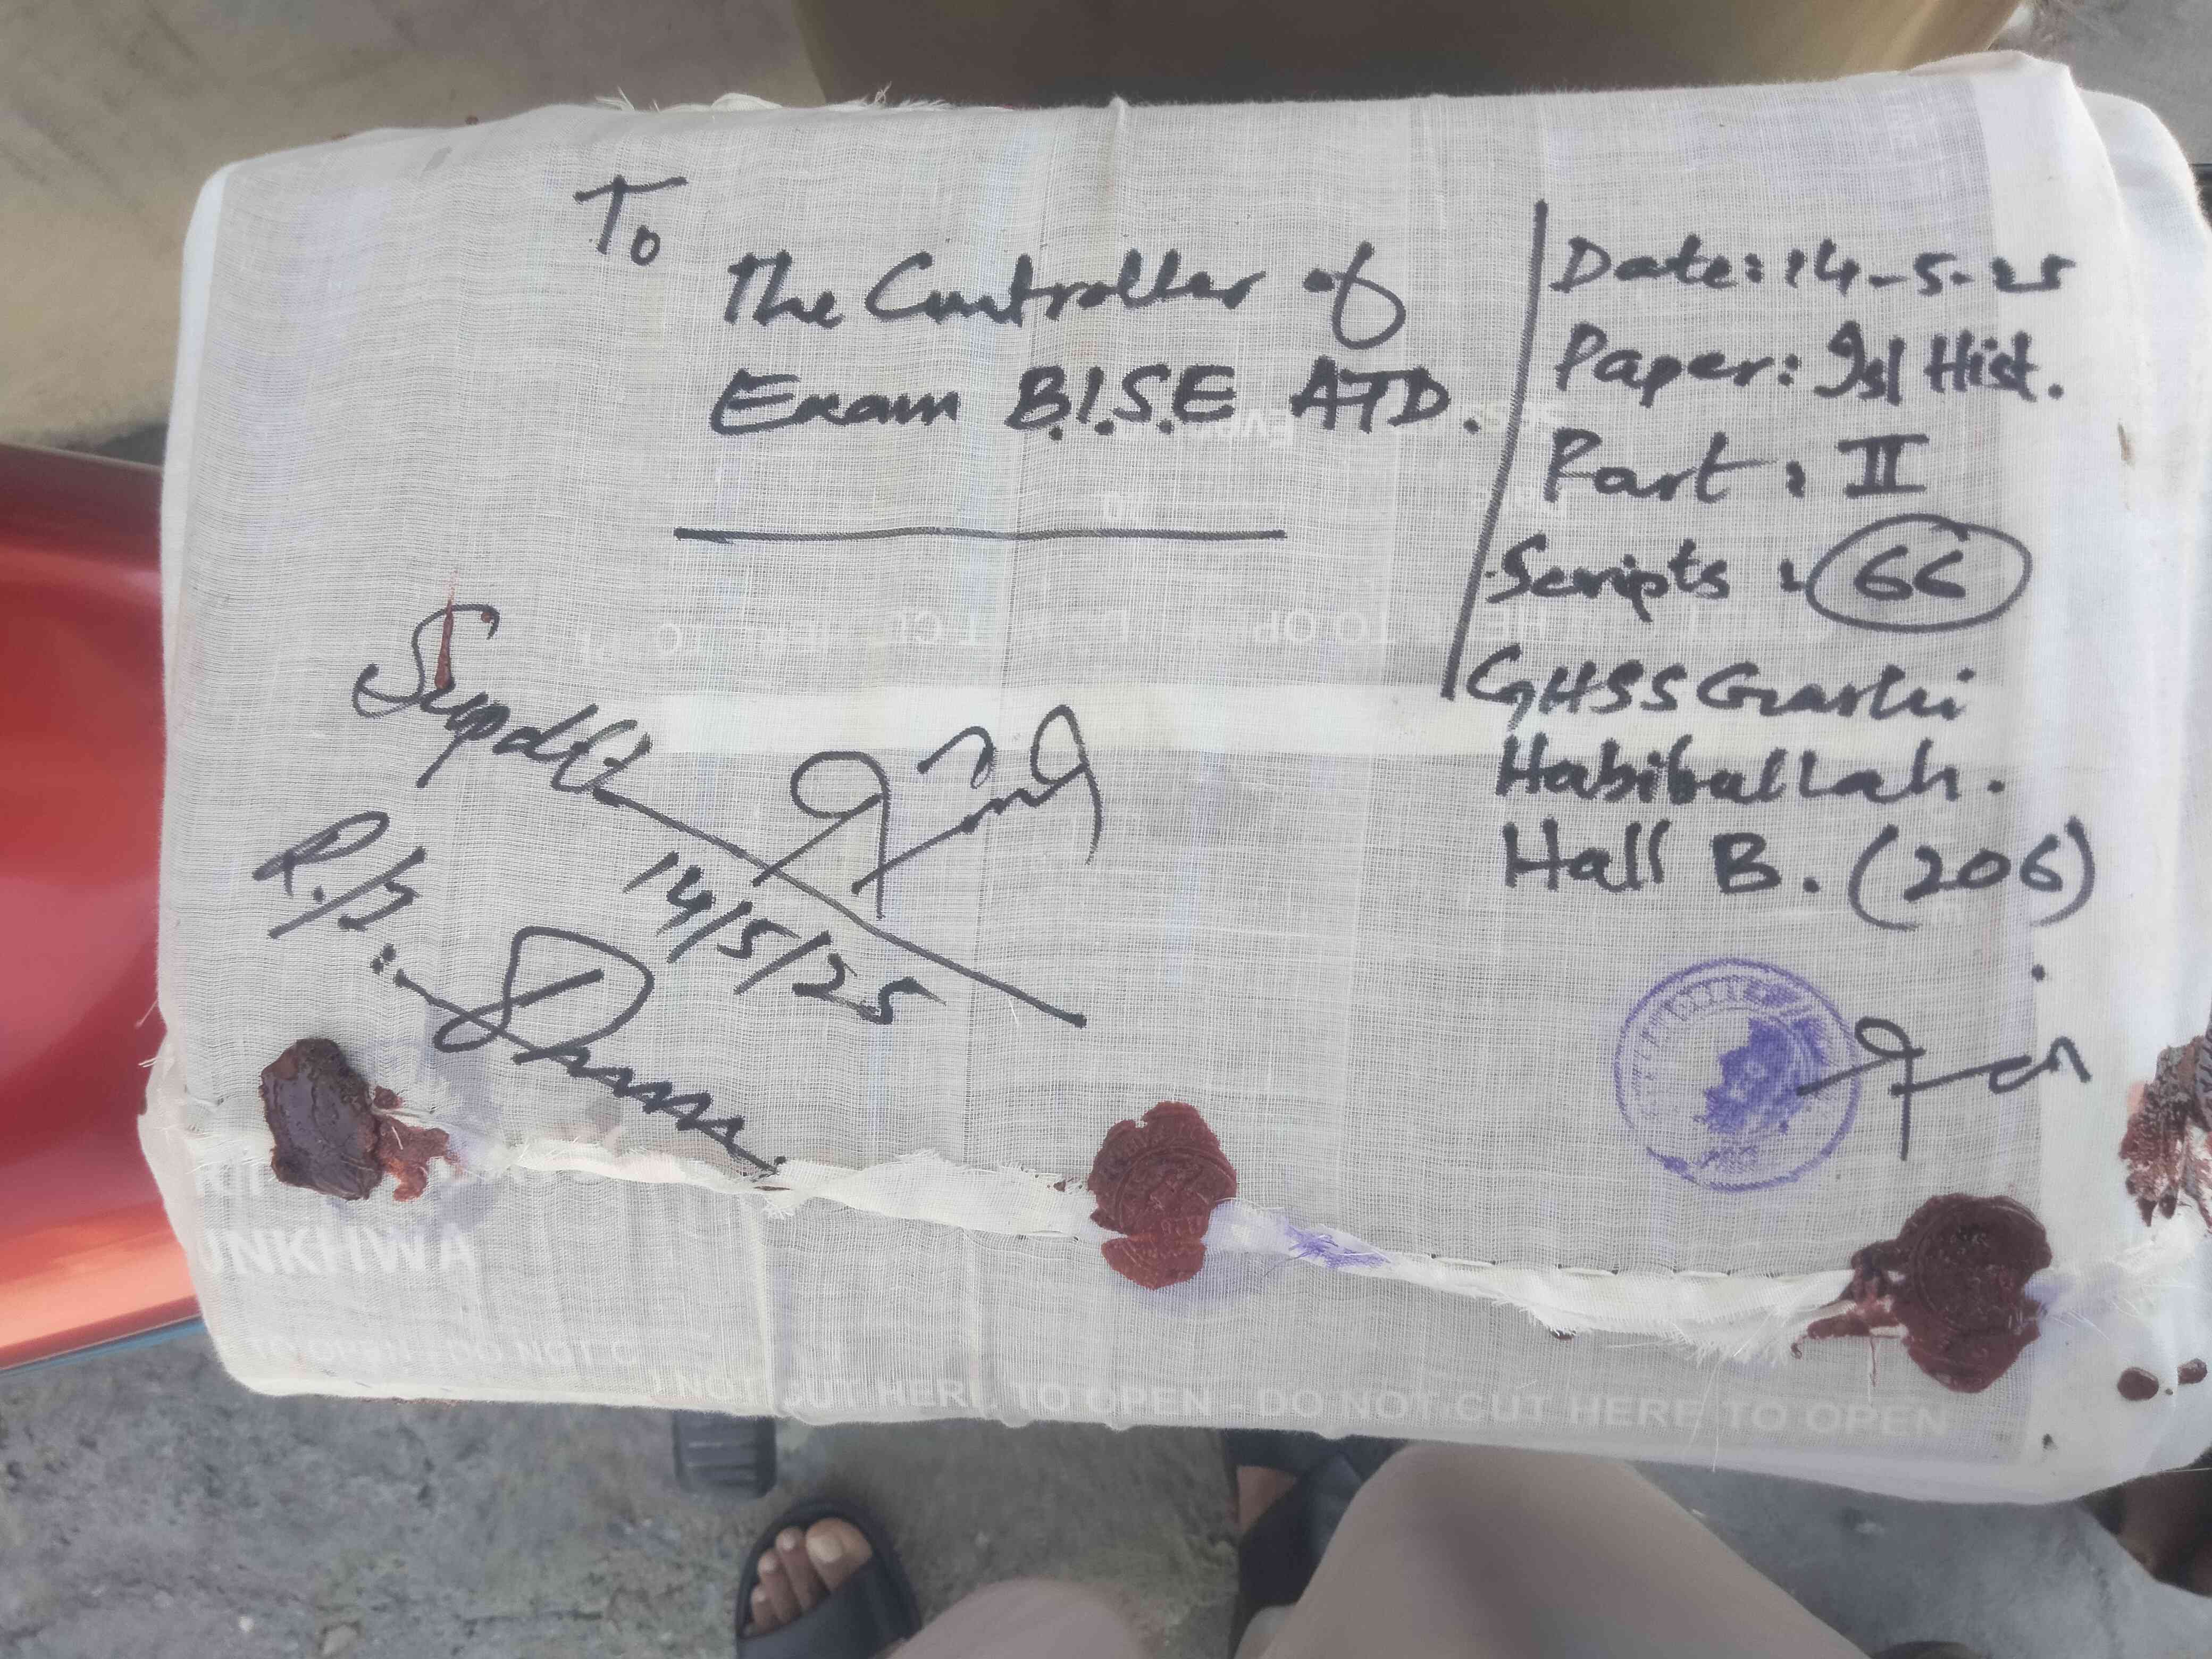 To
The Controller of
Exam B.I.S.E ATD.
Date: 14-5-25
Paper: Isl Hist.
Part: II
Scripts: 66
GHSS Garhi
Habibullah.
Hall B. (206)
Supdtt
14/5/25
R.I.
UNKHWA
TO OPEN - DO NOT C
NOT CUT HERE TO OPEN - DO NOT CUT HERE TO OPEN